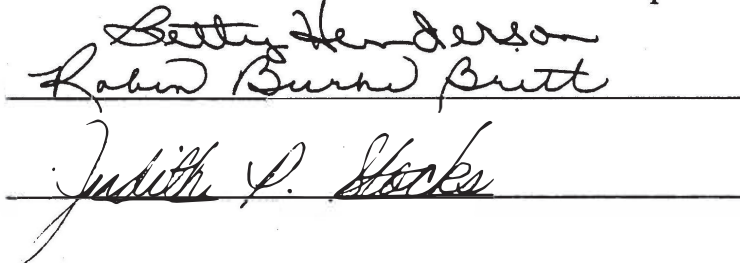 Betty Henderson
Robin Burke Britt
Judith P. Stocks